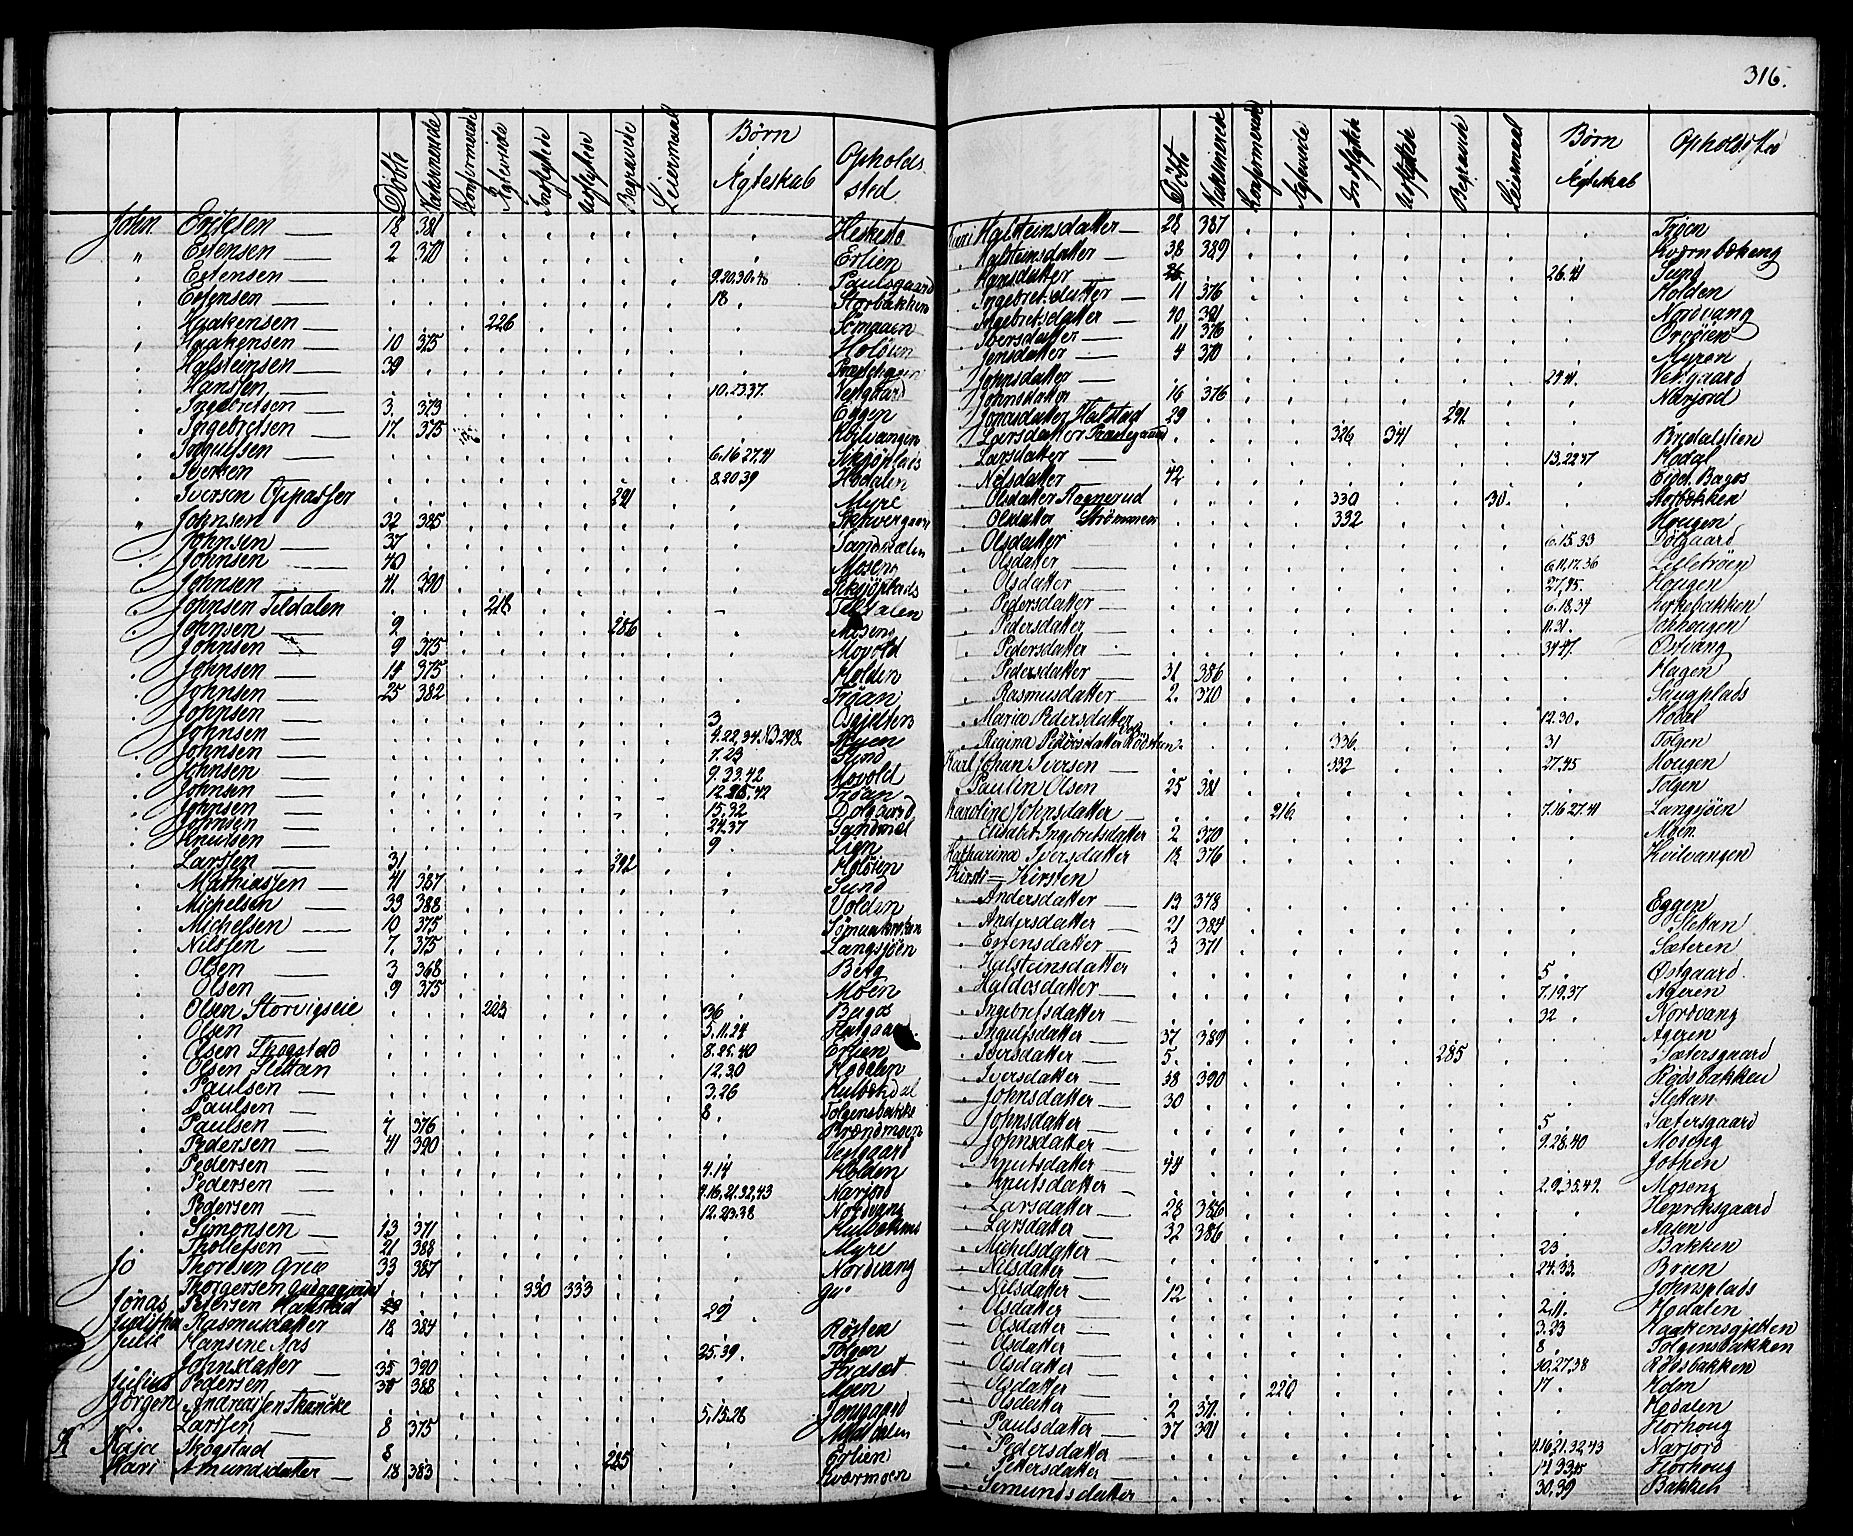 316.
Døbte Vakcinerede Konfirmerede Ægteviede Indflyttede Udflyttede Begravede Leiermaal Børn Ægteskab Opholds sted.
John Eriksen 18 381
" Estensen 2 370 Erlien
Estensen 9.20.30.40 Paulsgaard
Estensen 18 Storbakken
Haakensen 226
Haakensen 10 375 Holøien
Halsteinsen 39
Hansen 10.23.37 Vestgaard
Ingebretsen 3. 373 Eggen
Ingebretsen 17. 375 Kvilvangen
Ingulfsen 6.16.27.41
Iversen 8.20.39 Hodalen
Iversen Oppasser 291 Myre
" Johnsen 32 385
Johnsen 37 Sandmælen
Johnsen 40 Moseng
Johnsen 41. 390
Johnsen Teldalen 218 Teldalen
Johnsen 9 286 Moseng
Johnsen 9 375 Movold
Johnsen 18 375 Holden
Johnsen 25 382 Trøan
Johnsen 3
Johnsen 4.22.34 NB 298. Moen
Johnsen 7.23 Sund
Johnsen 9.33.42 Movold
Johnsen Trøan
Johnsen 15.32 Dølgaard
Johnsen 24.37 Sandmæl
Knutsen 9. Lien
Larsen 31 392 Holøien
Mathiassen 41 387 Sund
Michelsen 33 388 Volden
Michelsen 10 375
Nilssen 7 375 Langsjøen
Olsen 3 368 Berg
Olsen 9 375 Moen
Olsen Storvigseie 203 36 Bagos
Olsen 5.11.24
Olsen Skogstad 8.25.40 Erlien
Olsen Slettan 12.30 Hodalen
Paulsen 3.26
Paulsen 8. Tolgensbakke
Paulsen 7 376 Brændmoen
Pedersen 41 390 Vestgaard
Pedersen 4.14 Holden
Pedersen 4.16.21.32.43 Narjord
Pedersen 12.23.38 Nordvang
Simonsen 13 371
Thollefsen 21 388 Myre
Jo Thoresen Grue 33 387 Nordvang
Thorgersen 330 333
Jonas Pedersen Halstad 29
Rasmusdatter 18 384 Røsten
Julie Hansine Aas 25.39. Tolgen
Johnsdatter 35 390
Julius Pedersen 30 388 Moen
Jørgen Andreassen Skancke 5.15.28 Jonsgaard
Larsen 8 375
K Kaja Skogstad 8 285 Erlien
Kari Amundsdatter 18 383 Kværmoen
Døbte Vakcinerede Konfirmerede Ægteviede Indflyttede Udflyttede Begravede Leiermaal Børn Ægteskab Opholdssted
Kari Halsteinsdatter 28 387 Trøen
Halsteinsdatter 38 389 Kværnbekeng
Hansdatter 26. 26.41 Sund
Ingebretsdatter 11 376 Holden
Ingebretsdatter 40 391 Nordvang
Iversdatter 11 376
Jensdatter 4 370 Myren
Johnsdatter 29.41. Vestgaard
Johnsdatter 16 376 Narjord
Jonasdatter Halstad 29 291
Larsdatter 326 341
Larsdatter 13.22.37 Hodal
Nilsdatter 42 Eid. Bagos
Olsdatter Ragnerud 330 30. Storbækken
Olsdatter Strømmen 332 Hougen
Olsdatter 6.15.33 Dølgaard
Olsdatter 6.11.17.36 Lillebrøen
Olsdatter 27.45. Hougen
Pedersdatter 6.18.34 Kirkebakken
Pedersdatter 11.31.
Pedersdatter 34.47. Østvang
Pedersdatter 31 386 Hagen
Rasmusdatter 2. 370
Maria Pedersdatter 12.30. Hodal
Regina Pedersdatter Rødstuen 336. 31 Tolgen
Karl Johan Iversen 332 27.45 Hougen
Paulin Olsen 25 381 Tolgen
Karoline Johnsdatter 216 7.16.27.41 Langsjøen
Elisabet Ingebretsdatter 2 370 Moen
Katharina Iversdatter 18 376 Kvilvangen
Kirsti = Kirsten
Andersdatter 12 378 Eggen
Andersdatter 21 384 Slettan
Estensdatter 3 371 Sæteren
Halsteinsdatter 5 Østgaard
Haldosdatter 7.19.37 Ageren
Ingebretsdatter 32 Nordvang
Ingulfsdatter 37 389 Ageren
Iversdatter 5. 285 Sætersgaard
Iversdatter 38 390 Rødsbakken
Johnsdatter 30 Slettan
Johnsdatter 5 Sætersgaard
Johnsdatter 9.28.40 Moseng
Knutsdatter 44
Knutsdatter 2.9.35.49. Moseng
Larsdatter 28 386 Henriksgaard
Larsdatter 32 386 Aasen
Michelsdatter 23. Bakken
Nilsdatter 24.33. Brien
Nilsdatter 12 Johnsplads
Olsdatter 2.11. Hodalen
Olsdatter 3.23 Haakensgjelten
Olsdatter 8 Tolgensbakken
Olsdatter 10.27.38 Rødsbakken
Olsdatter 220 17 Holm
Olsdatter 2 371 Hodalen
Paulsdatter 37 391 Horhoug
Pedersdatter 4.16.21.32.43 Narjord
Pettersdatter Horhoug
Simundsdatter 30.39 Bakken